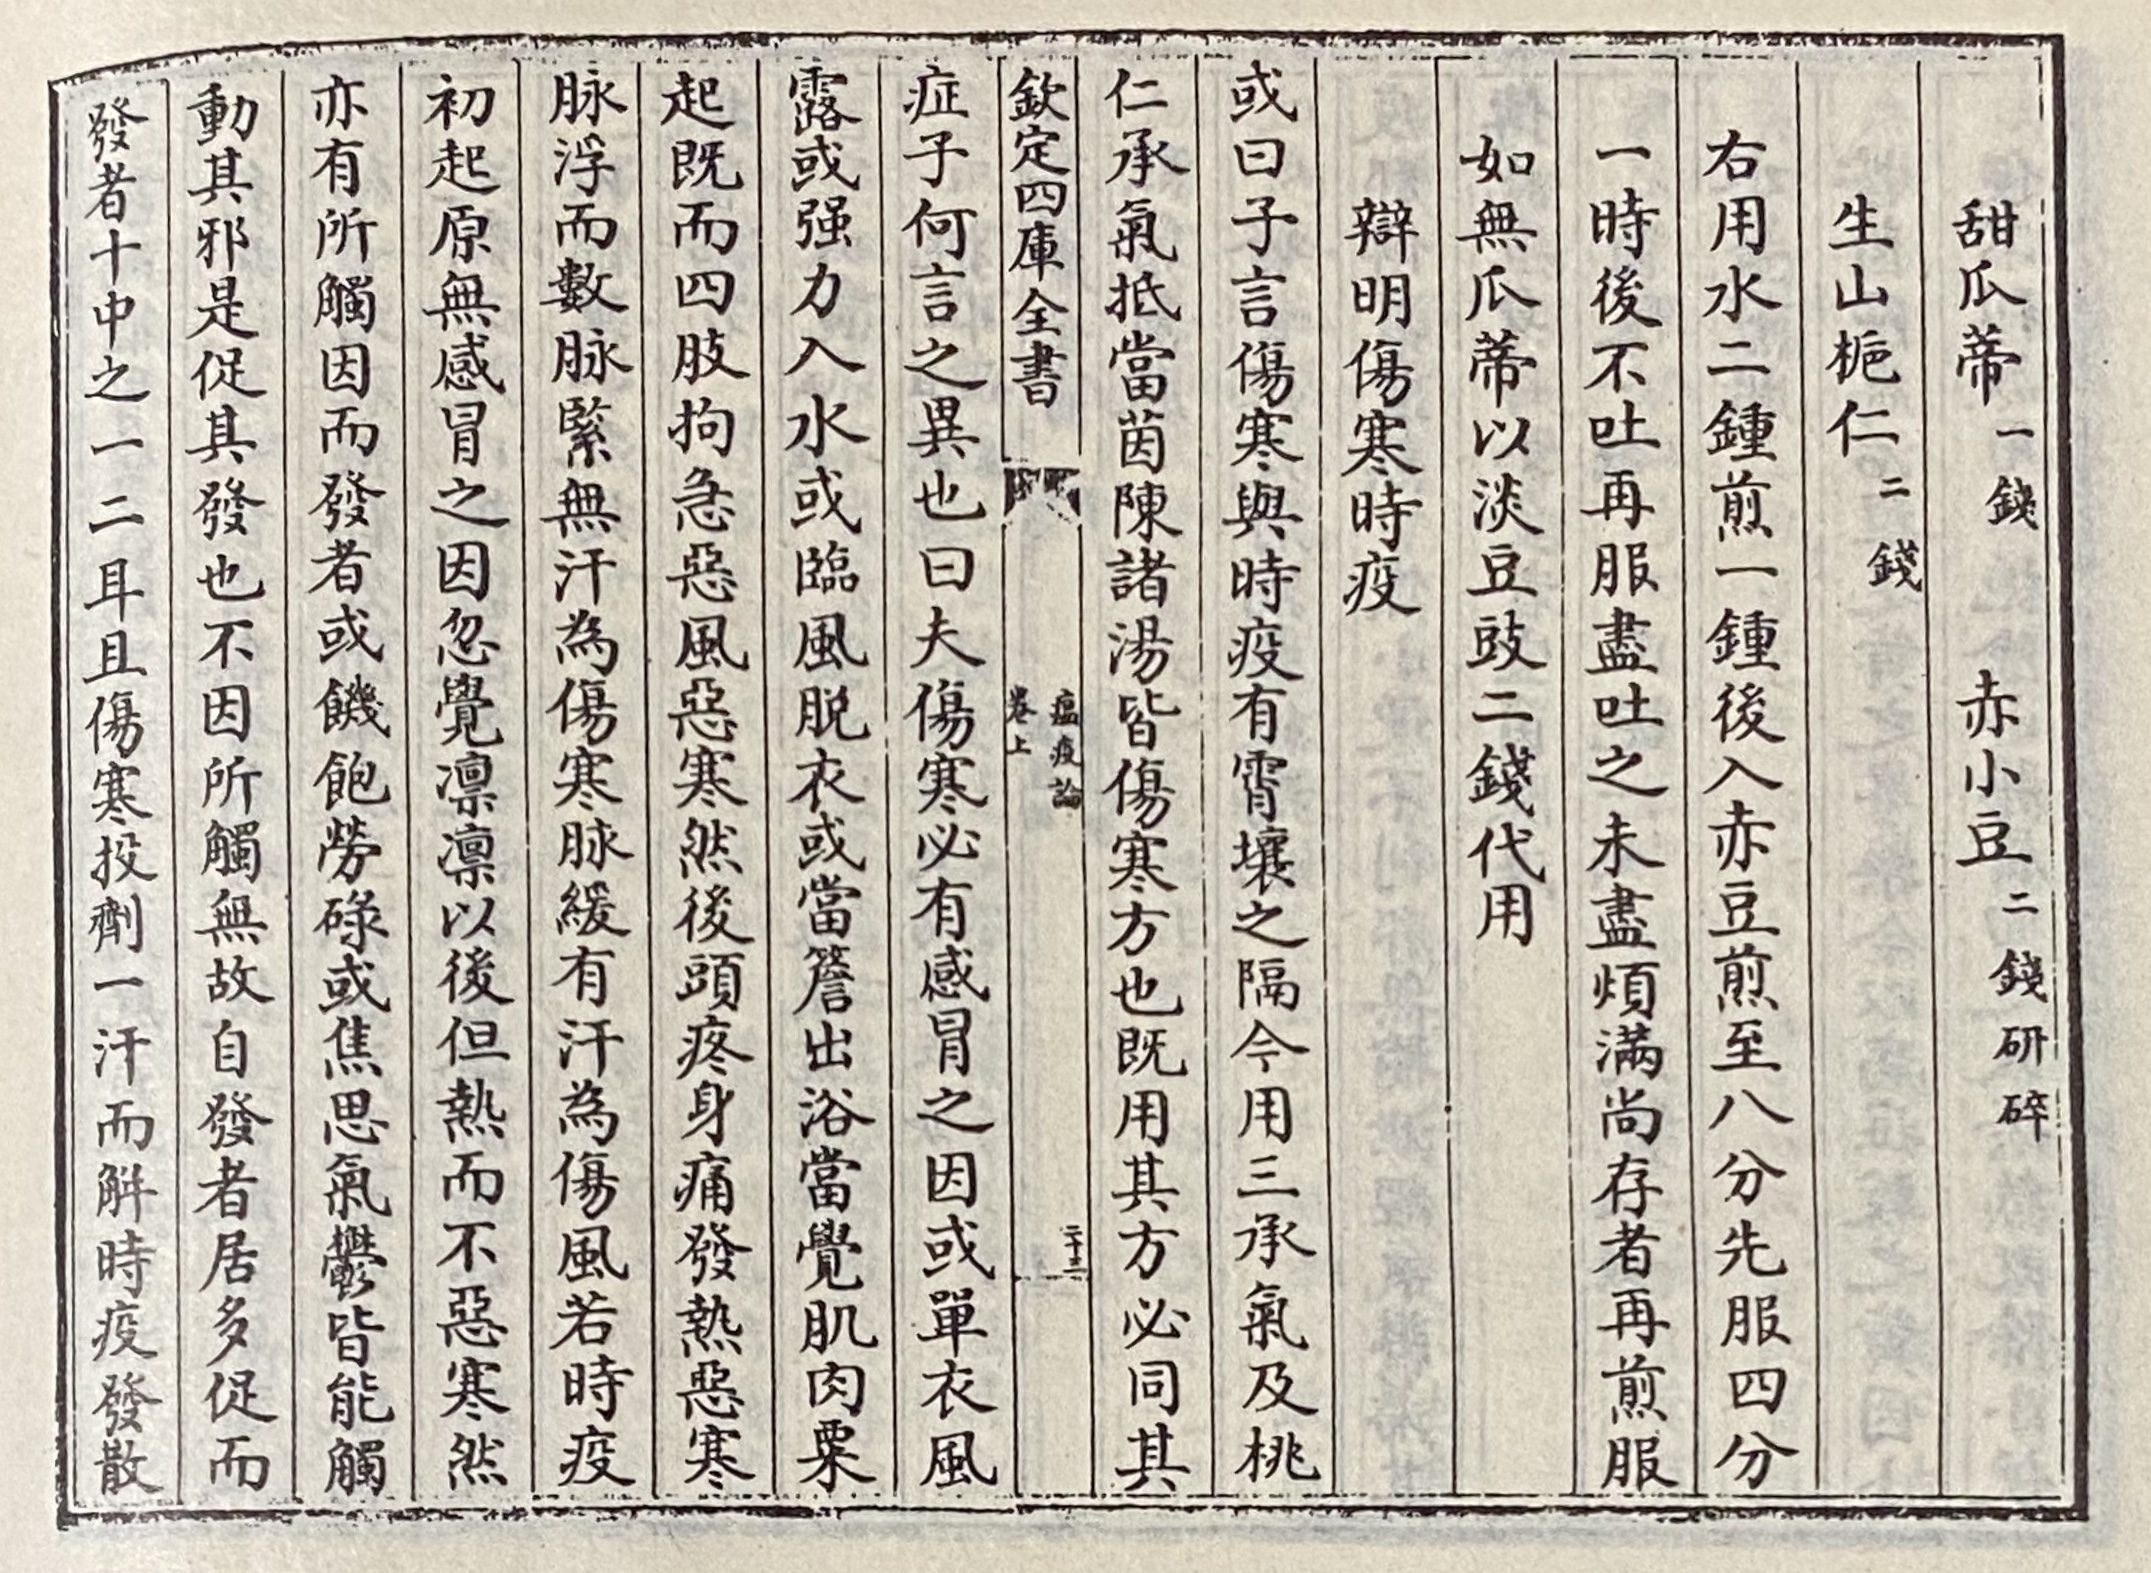 甜瓜蒂一錢　赤小豆二錢研碎
生山梔仁二錢
右用水二鍾煎一鍾後入赤豆煎至八分先服四分
一時後不吐再服盡吐之未盡煩滿尚存者再煎服
如無瓜蒂以淡豆豉二錢代用
辯明傷寒時疫
或曰子言傷寒與時疫有霄壤之隔今用三承氣及桃
仁承氣抵當茵陳諸湯皆傷寒方也既用其方必同其
欽定四庫全書
瘟疫論
卷上
二十三
症子何言之異也曰夫傷寒必有感冒之因或單衣風
露或强力入水或臨風脱衣或當簷出浴當覺肌肉粟
起既而四肢拘急惡風惡寒然後頭疼身痛發熱惡寒
脉浮而數脉緊無汗為傷寒脉緩有汗為傷風若時疫
初起原無感冒之因忽覺凛凛以後但熱而不惡寒然
亦有所觸因而發者或饑飽勞碌或焦思氣鬱皆能觸
動其邪是促其發也不因所觸無故自發者居多促而
發者十中之一二耳且傷寒投劑一汗而觧時疫發散